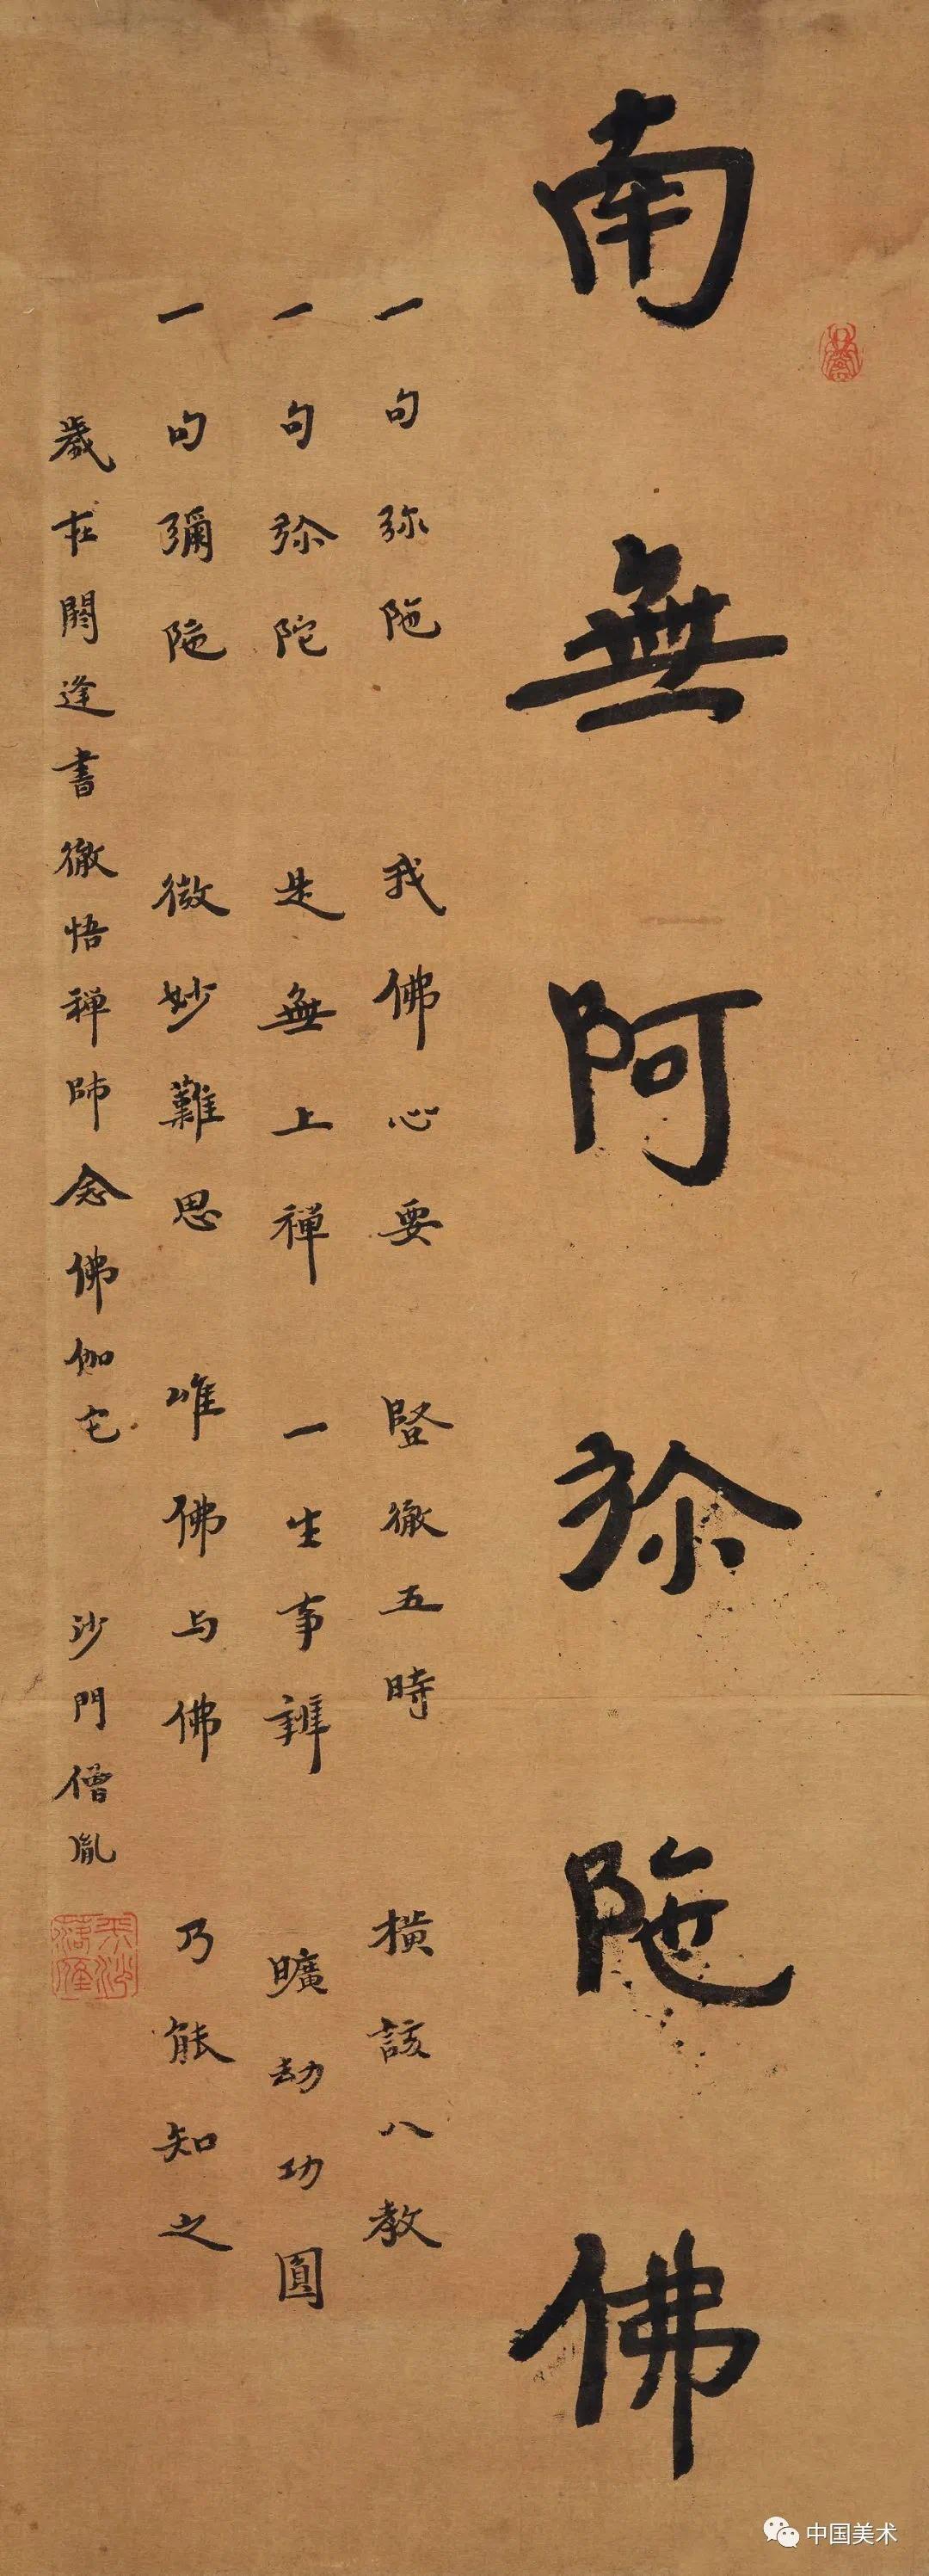 南無阿弥陁佛
一句弥陁 我佛心要 竪徹五時 横該八教
一句弥陀 是無上禪 一生事辦 曠劫功圓
一句彌陁 微妙難思 唯佛与佛 乃能知之
歲在閼逢書徹悟禪師念佛伽它 沙門僧胤
中国美术